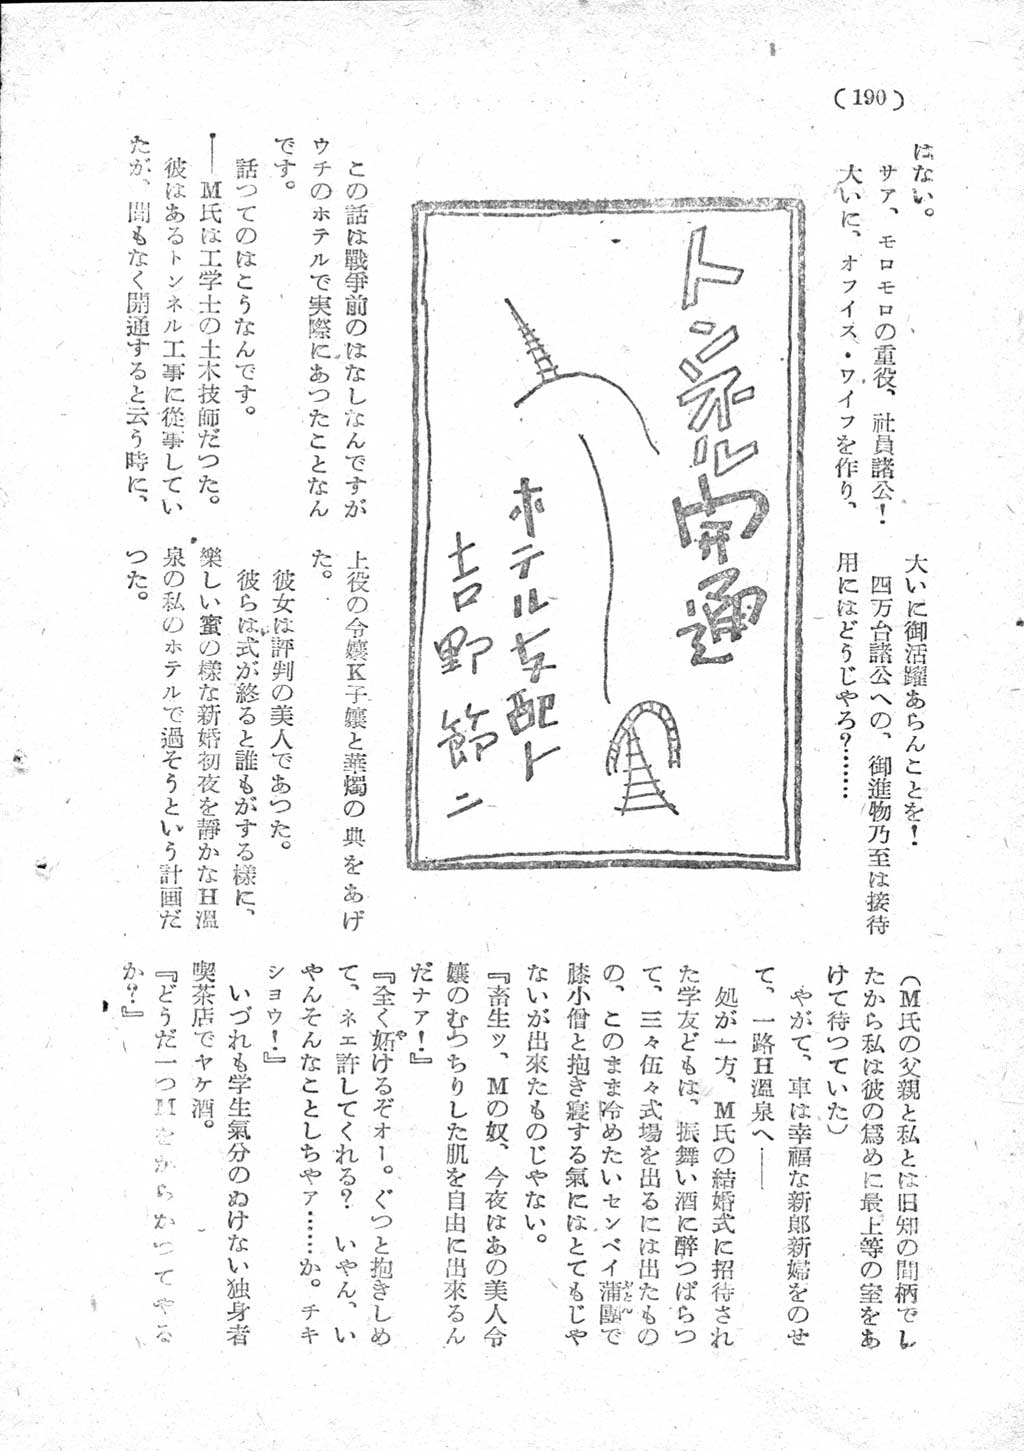 (190)
はない。
サア、モロモロの重役、社員諸公！
大いに、オフイス・ワイフを作り、
大いに御活躍あらんことを！
四万台諸公への、御進物乃至は接待
用にはどうじやろ？………
トンネル開通
ホテル支配人
吉野節二
この話は戰爭前のはなしなんですが
ウチのホテルで実際にあつたことなん
です。
話つてのはこうなんです。
――M氏は工学士の土木技師だつた。
彼はあるトンネル工事に從事してい
たが、間もなく開通すると云う時に、
上役の令孃K子孃と華燭の典をあげ
た。
彼女は評判の美人であつた。
彼らは式が終ると誰もがする様に、
樂しい蜜の様な新婚初夜を靜かなH溫
泉の私のホテルで過そうという計画だ
つた。
（M氏の父親と私とは旧知の間柄でし
たから私は彼の爲めに最上等の室をあ
けて待つていた）
やがて、車は幸福な新郞新婦をのせ
て、一路H溫泉へ――
処が一方、M氏の結婚式に招待され
た学友どもは、振舞い酒に醉つぱらつ
て、三々伍々式場を出るには出たもの
の、このまま冷めたいセンベイ蒲團で
膝小僧と抱き寢する氣にはとてもじや
ないが出來たものじやない。
『畜生ッ、Mの奴、今夜はあの美人令
孃のむつちりした肌を自由に出來るん
だナァ！』
『全く妬けるぞオー。ぐつと抱きしめ
て、ネェ許してくれる？　いやん、い
やんそんなことしちやァ……か。チキ
ショウ！』
いづれも学生氣分のぬけない独身者
喫茶店でヤケ酒。
『どうだ一つMをからかつてやる
か？』